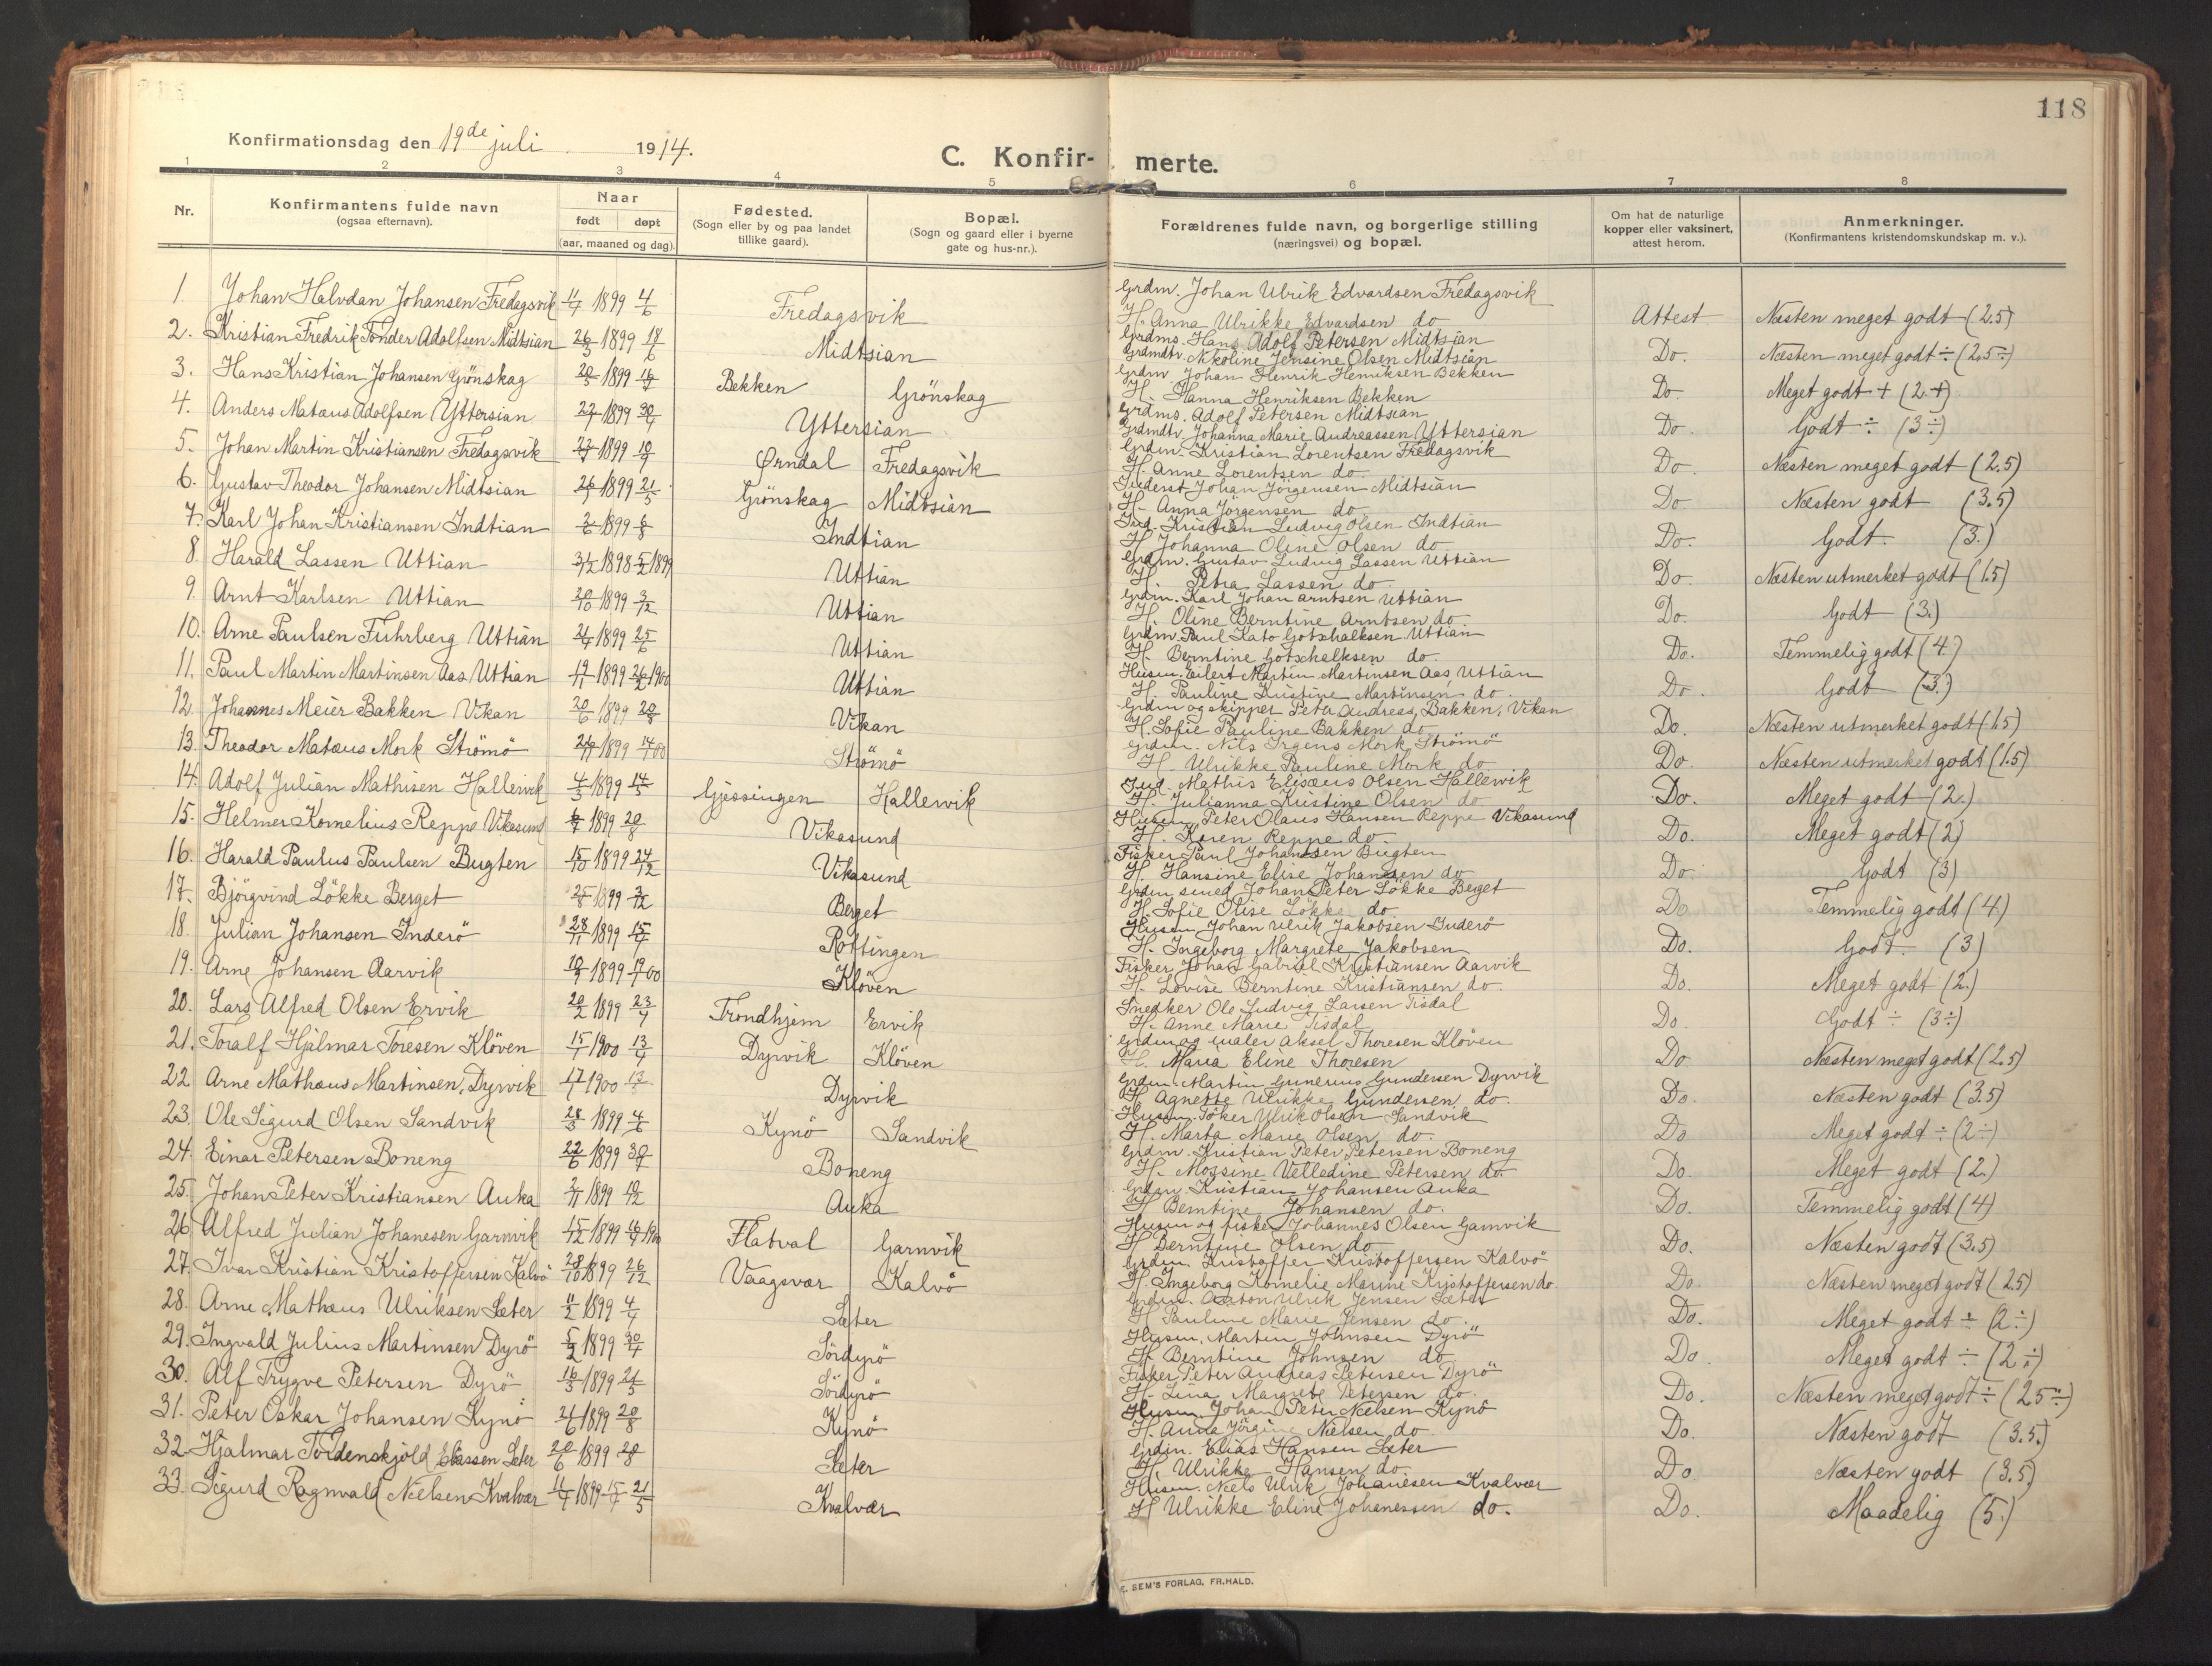 118
Konfirmationsdag den 19de juli 1914.
C. Konfir- merte.
1 2 3 4 5 6 7 8
Nr.
Konfirmantens fulde navn
(ogsaa efternavn).
Naar
født døpt
(aar, maaned og dag).
Fødested.
(Sogn eller by og paa landet
tillike gaard).
Bopæl.
(Sogn og gaard eller i byerne
gate og hus-nr.).
Forældrenes fulde navn, og borgerlige stilling
(næringsvei) og bopæl.
Om hat de naturlige
kopper eller vaksinert,
attest herom.
Anmerkninger.
(Konfirmantens kristendomskundskap m. v.).
1. Johan Halvdan Johansen Fredagsvik 1899 4/6 Fredagsvik Grdm. Johan Ulrik Edvardsen Fredagsvik
H. Anna Ulrikke Edvardsen do Attest Næsten meget godt (2.5)
2. Kristian Fredrik Tønder Adolfsen Midtsian 26/3 1899 18/6 Midtsian Grdms. Hans Adolf Petersen Midtsian
Grdmdtr. Nikoline Jensine Olsen Midtsian Do. Næsten meget godt ÷ (2.5÷)
3. Hans Kristian Johansen Grönskag 20/5 1899 16/7 Bekken Grönskag Grdm Johan Henrik Henriksen Bekken
H. Hanna Henriksen Bekken Do. Meget godt + (2.+)
4. Anders Matæus Adolfsen Yttersian 1899 Yttersian Grdms. Adolf Petersen Midtsian
Grdmdtr. Johanna Marie Andreassen Yttersian Do. Godt ÷ (3÷)
5. Johan Martin Kristiansen Fredagsvik 1899 Ørndal Fredagsvik Grdm. Kristian Lorentsen Fredagsvik
H. Anne Lorentsen do. Do. Næsten meget godt (2.5)
6. Gustav Theodor Johansen Midtsian 1899 21/5 Grönskag Midtsian Inderst Johan Jörgensen Midtsian
H. Anna Jörgensen do Do Næsten godt (3.5)
7. Karl Johan Kristiansen Indtian 1899 Indtian Ind. Kristian Ludvig Olsen Indtian
H. Johanna Oline Olsen do Do. Godt. (3.)
8. Harald Lassen Uttian 31/12 1898 5/2 1899 Uttian Grdm. Gustav Ludvig Lassen Uttian
H. Petra Lassen do. Do. Næsten utmerket godt (1.5)
9. Arnt Karlsen Uttian 20/10 1899 3/12 Uttian Grdm. Karl Johan Arntsen Uttian
H. Oline Berntine Arntsen do. Do. Godt (3.)
10. Arne Paulsen Fuhrberg Uttian 1899 25/6 Uttian Grdm. Paul Kato Gotschalksen Uttian
H. Berntine Gotschalksen do. Do. Temmelig godt (4.)
11. Paul Martin Martinsen Aas Uttian 19/11 1899 1900 Uttian Husm. Eilert Martin Martinsen Aas, Uttian
H. Pauline Kristine Martinsen do. Do. Godt (3.)
12. Johannes Meier Bakken Vikan 20/6 1899 20/8 Vikan Grdm og skipper Peter Andreas Bakken, Vikan
H. Sofie Pauline Bakken do Do. Næsten utmerket godt (1.5)
13. Theodor Matæus Mork Strömö 26/11 1899 14/1 00 Strömö Grdm. Nils Irgens Mork Strömö
H. Ulrikke Pauline Mork do Do. Næsten utmerket godt (1.5)
14. Adolf Julian Mathisen Hallervik 4/3 1899 14/5 Gjessingen Hallervik Ind. Mathis Elisæus Olsen Hallervik
H. Julianna Kristine Olsen do Do. Meget godt (2.)
15. Helmer Kornelius Reppe Vikasund 1899 20/8 Vikasund Husm. Peter Olaus Hansen Reppe Vikasund
H. Karen Reppe do. Do. Meget godt (2)
16. Harald Paulus Paulsen Bugten 15/10 1899 24/12 Vikasund Fisker Paul Johansen Bugten
H. Hansine Elise Johansen do Do. Godt (3)
17. Bjørgvind Lökke Berget 1899 3/12 Berget Grdm smed Johan Peter Lökke Berget
H. Sofie Olise Lökke do. Do Temmelig godt (4.)
18. Julian Johansen Inderö 28/11 1899 Rottingen Husm Johan Ulrik Jakobsen Inderö
H. Ingeborg Margrete Jakobsen Do. Godt. (3)
19. Arne Johansen Aarvik 1899 00 Klöven Fisker Johan Gabriel Kristiansen Aarvik
H. Lovise Berntine Kristiansen do. Do. Meget godt (2.)
20. Lars Alfred Olsen Ervik 20/2 1899 23/4 Trondhjem Ervik Snedker Ole Ludvig Larsen Tisdal
H. Anne Marie Tisdal Do. Godt ÷ (3÷)
21. Toralf Hjalmar Toresen Klöven 15/1 1900 13/4 Dyrvik Klöven Grdm og maler Aksel Thoresen Klöven
H. Maria Eline Thoresen Do Næsten meget godt (2.5)
22 Arne Mathæus Martinsen Dyrvik 17/1 1900 Dyrvik Grdm. Martin Gunerius Gundersen Dyrvik
H. Agnette Ulrikke Gundersen do. Do. Næsten godt (3.5)
23. Ole Sigurd Olsen Sandvik 28/3 1899 4/6 Kynö Sandvik Husm. Töker Ulrik Olsen Sandvik
H. Marta Marie Olsen do. Do Meget godt ÷ (2÷)
24. Einar Petersen Boneng 22/6 1899 30/7 Boneng Grdm. Kristian Peter Petersen Boneng
H. Mogsine Velledine Petersen do. Do. Meget godt (2.)
25. Johan Peter Kristiansen Auka 2/11 1899 10/12 Auka Grdm. Kristian Johansen Auka
H. Berntine Johansen do. Do. Temmelig godt (4)
26 Alfred Julian Johanesen Garnvik 15/12 1899 Flatval Garnvik Husm og fisker Johannes Olsen Garnvik
H. Berntine Olsen do Do. Næsten godt (3.5)
27. Ivar Kristian Kristoffersen Kalvö 28/10 1899 26/12 Vaagsvær Kalvö Grdm Kristoffer Kristoffersen Kalvö
H. Ingeborg Kornelie Marine Kristoffersen do. Do. Næsten meget godt (2.5)
28. Arne Mathæus Ulriksen Sæter 11/2 1899 4/4 Sæter Grdm. Anton Ulrik Jensen Sæter
H. Pauline Marie Jensen do. Do. Meget godt ÷ (2÷)
29. Ingvald Julius Martinsen Dyrö 5/2 1899 30/4 Sördyrö Husm. Martin Johnsen Dyrö
H. Berntine Johnsen do Do. Meget godt ÷ (2÷)
30. Alf Trygve Petersen Dyrö 16/3 1899 21/5 Sördyrö Fisker Peter Andreas Petersen Dyrö
H. Lina Margrete Petersen do. Do. Næsten meget godt ÷ (2.5÷)
31. Peter Oskar Johansen Kynö 1899 20/8 Kynö Husm. Johan Peter Nielsen Kynö
H. Anna Jörgine Nielsen do Do. Næsten godt (3.5.)
32. Hjalmar Tordenskjold Eliassen Sæter 20/6 1899 Sæter Grdm. Elias Hansen Sæter
H. Ulrikke Hansen do. Do. Næsten godt (3.5)
33. Sigurd Ragnvald Nielsen Kvalvær 1899 21/5 Kvalvær Husm. Niels Ulrik Johanesen Kvalvær
H Ulrikke Eline Johanessen do. Do. Maadelig (5.)
E. SEM'S FORLAG, FR.HALD.